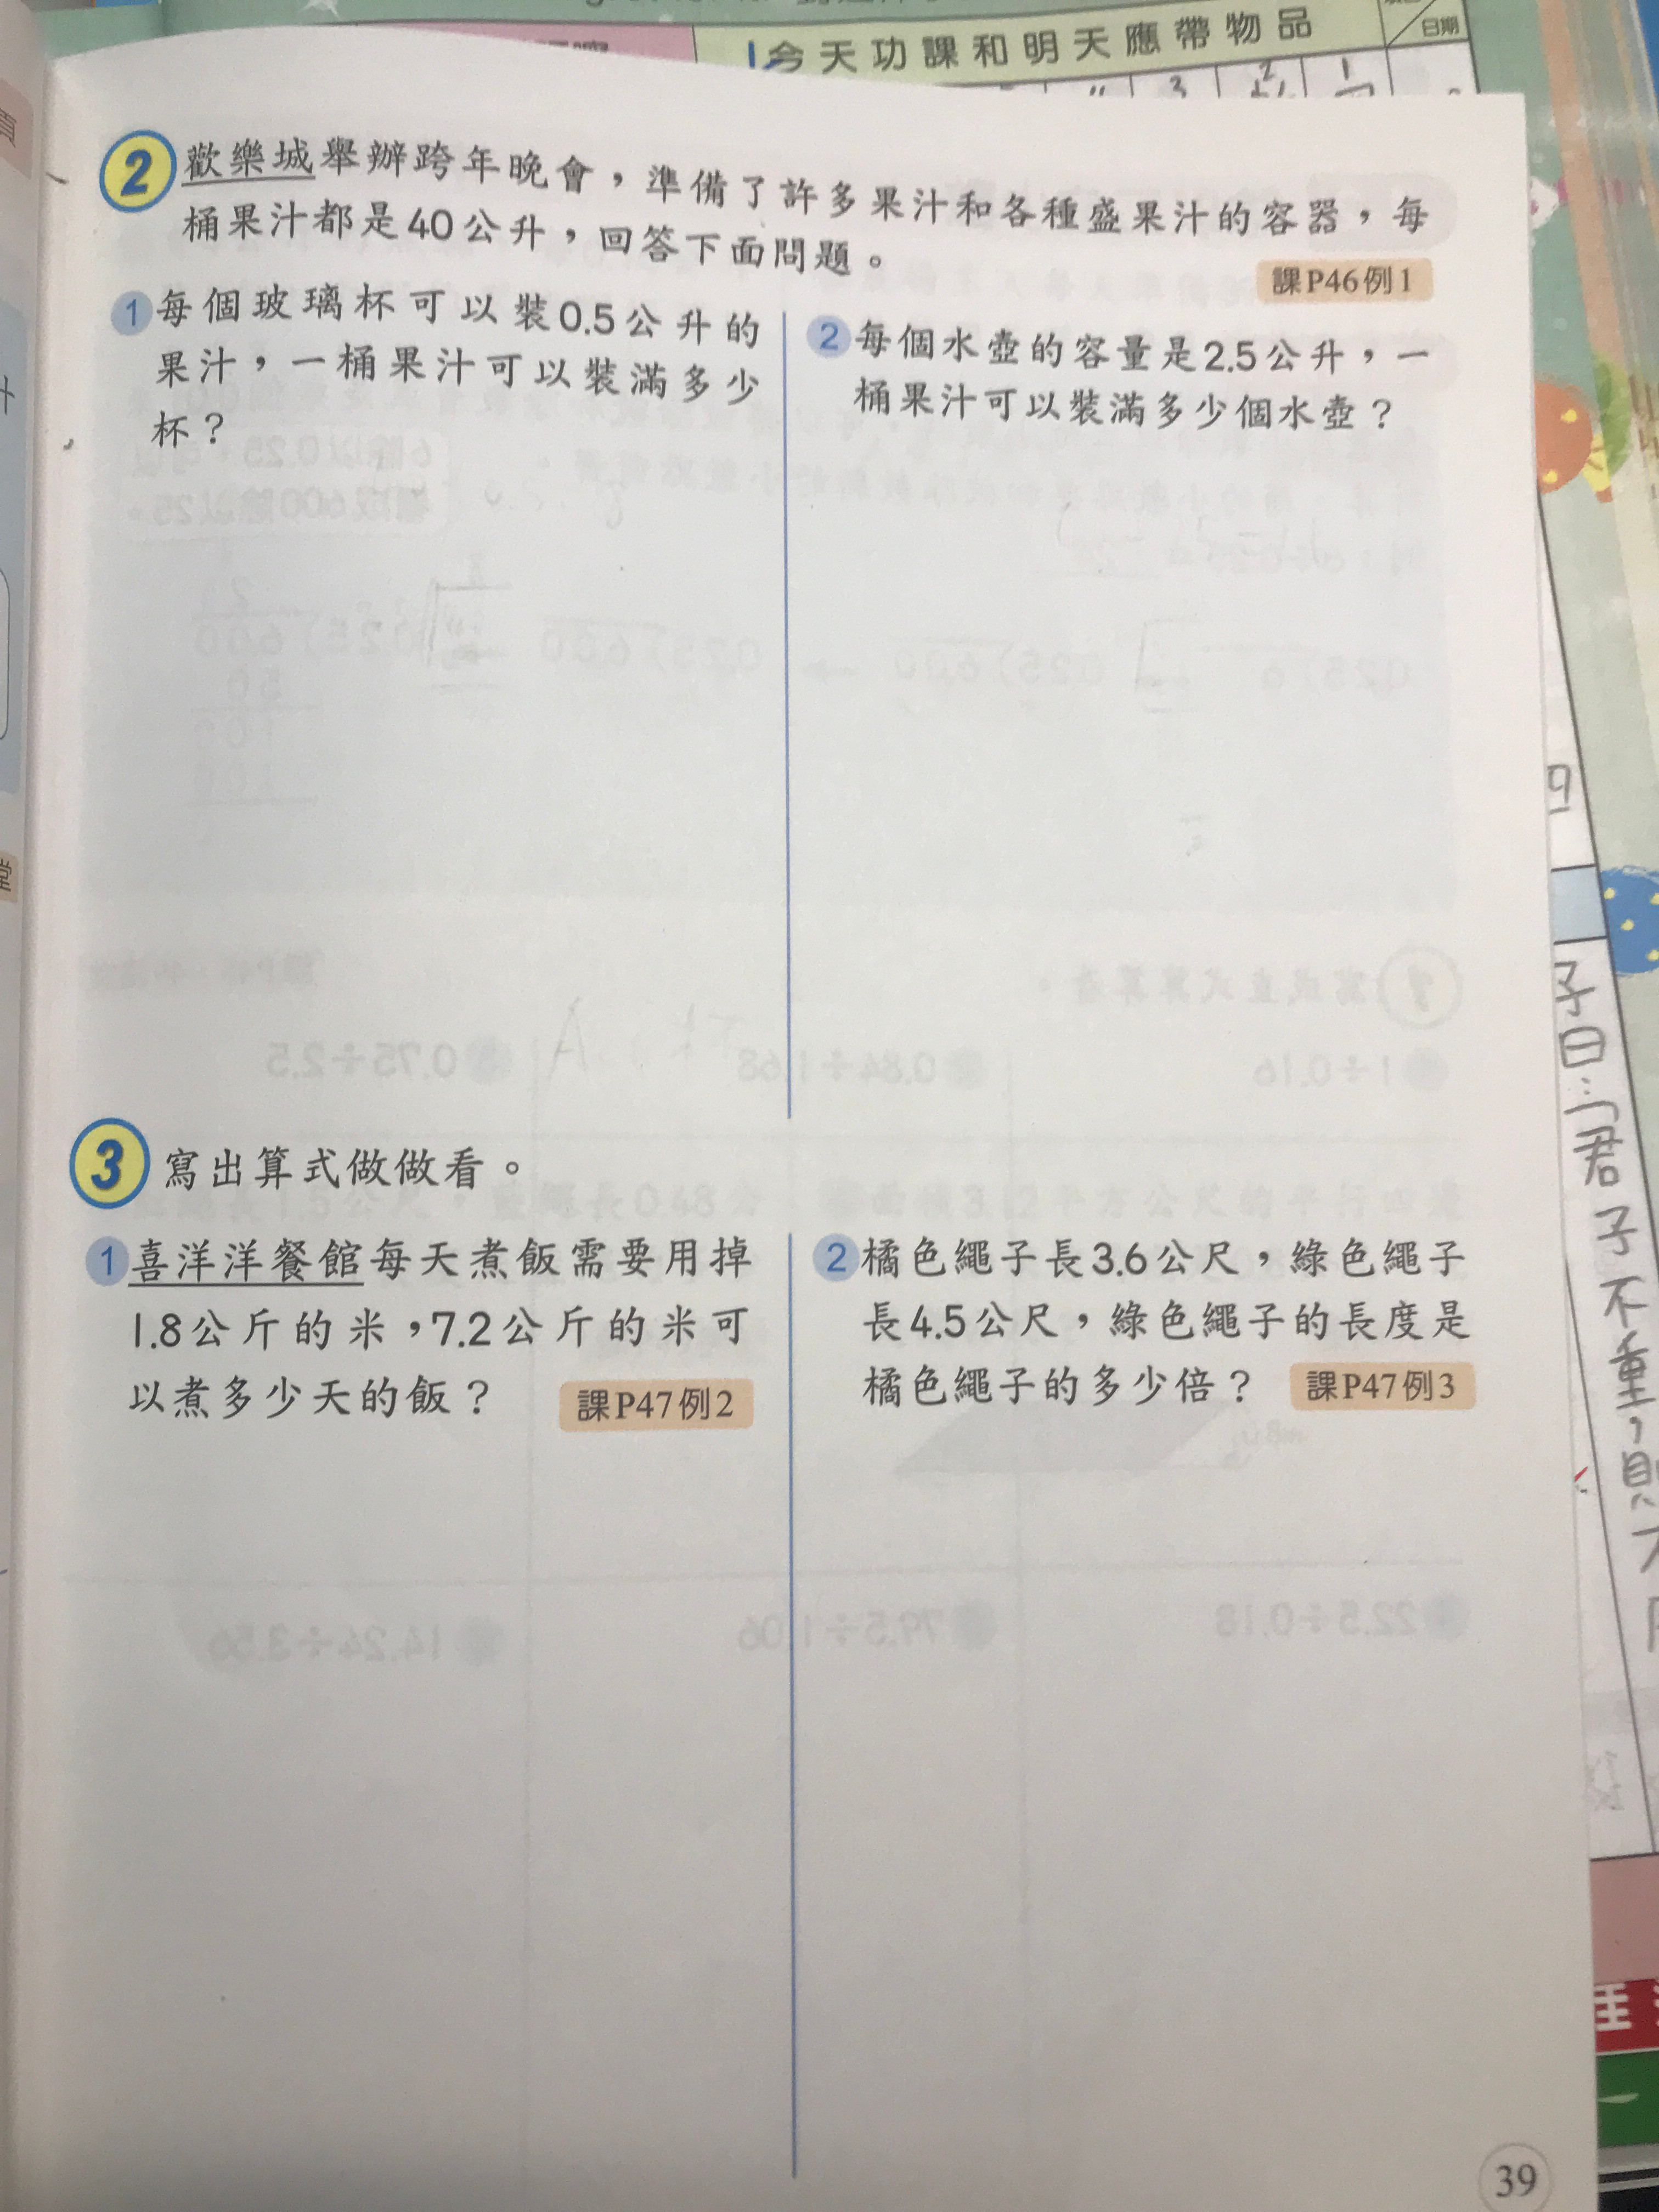 今天功課和明天應帶物品
日期
2 歡樂城舉辦跨年晚會，準備了許多果汁和各種盛果汁的容器，每
桶果汁都是40公升，回答下面問題。
課P46例1
1 每個玻璃杯可以裝0.5公升的
果汁，一桶果汁可以裝滿多少
杯？
2 每個水壺的容量是2.5公升，一
桶果汁可以裝滿多少個水壺？
3 寫出算式做做看。
1 喜洋洋餐館每天煮飯需要用掉
1.8公斤的米，7.2公斤的米可
以煮多少天的飯？
課P47例2
2 橘色繩子長3.6公尺，綠色繩子
長4.5公尺，綠色繩子的長度是
橘色繩子的多少倍？
課P47例3
子曰：「君子不重，則
39